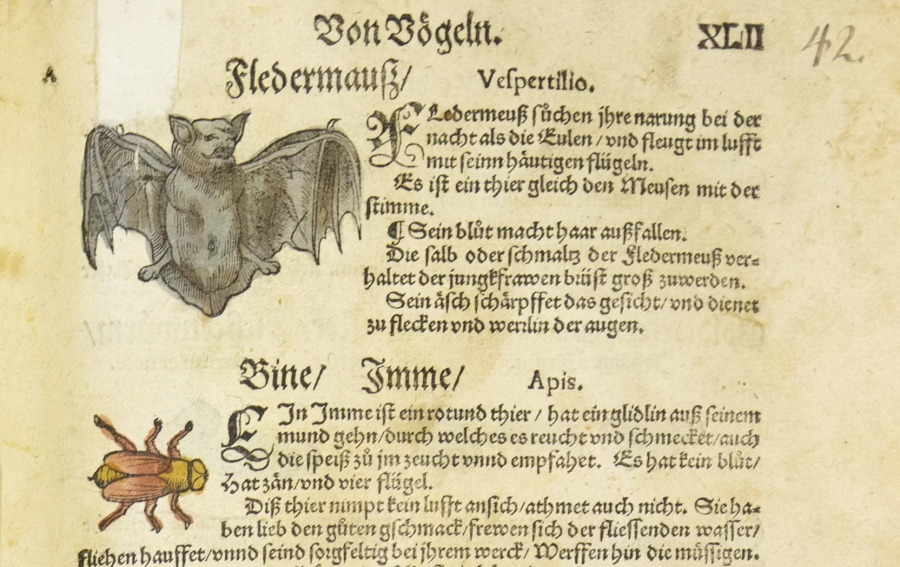 Von Vögeln. XLII 42.
A
Fledermauß/ Vespertilio.
FLedermeuß sůchen jhre narung bei der
nacht als die Eulen / vnd fleugt im lufft
mit seinn häutigen flügeln.
Es ist ein thier gleich den Meusen mit der
stimme.
¶ Sein blůt macht haar außfallen.
Die salb oder schmaltz der Fledermeuß ver=
haltet der jungkfrawen brüst groß zuwerden.
Sein äsch schärpffet das gesicht/ vnd dienet
zu flecken vnd werzlin der augen.
Bine/ Imme/ Apis.
EIn Imme ist ein rotund thier / hat ein glidlin auß seinem
mund gehn/durch welches es reucht vnd schmecket/auch
die speiß zů jm zeucht vnnd empfahet. Es hat kein blůt/
Hat zän/vnd vier flügel.
Diß thier nimpt kein lufft an sich/athmet auch nicht. Sie ha=
ben lieb den gůten gschmack/frewen sich der fliessenden wasser/
fliehen hauffet/vnnd seind sorgfeltig bei jhrem werck/ Werffen hin die müssigen.